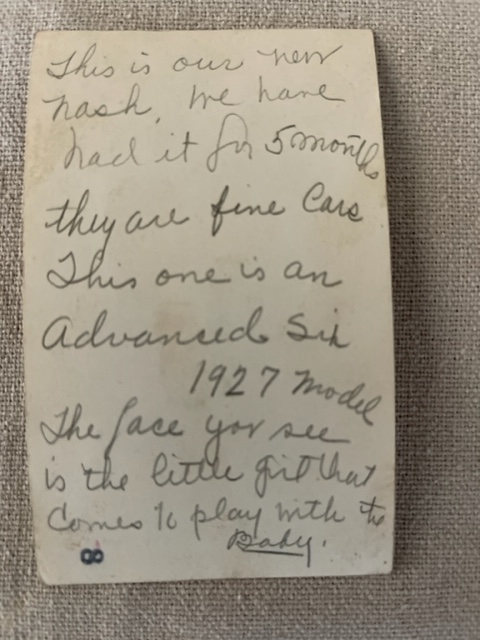 This is our new
nash, we have
had it for 5 months
they are fine Cars
This one is an
Advanced Six
1927 Model
The face you see
is the little girl that
Comes to play with the
Baby.
8